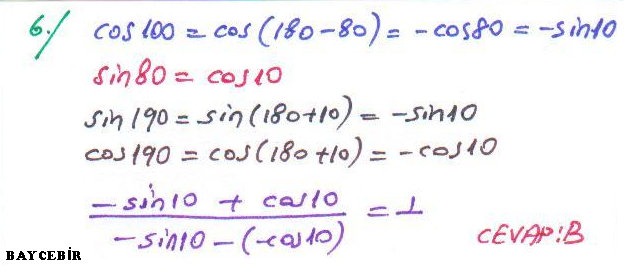 6./ cos100 = cos(180-80) = -cos80 = -sin10
sin80 = cos10
sin190 = sin(180+10) = -sin10
cos190 = cos(180+10) = -cos10
-sin10 + cos10
-sin10-(-cos10)
= 1
CEVAP:B
BAYCEBİR